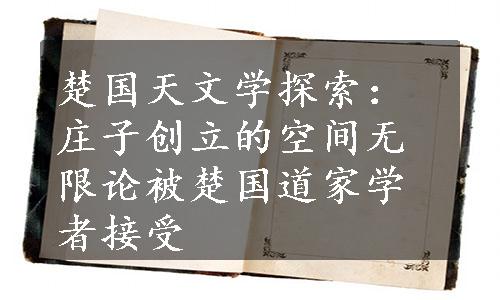 楚国天文学探索：
庄子创立的空间无
限论被楚国道家学
者接受